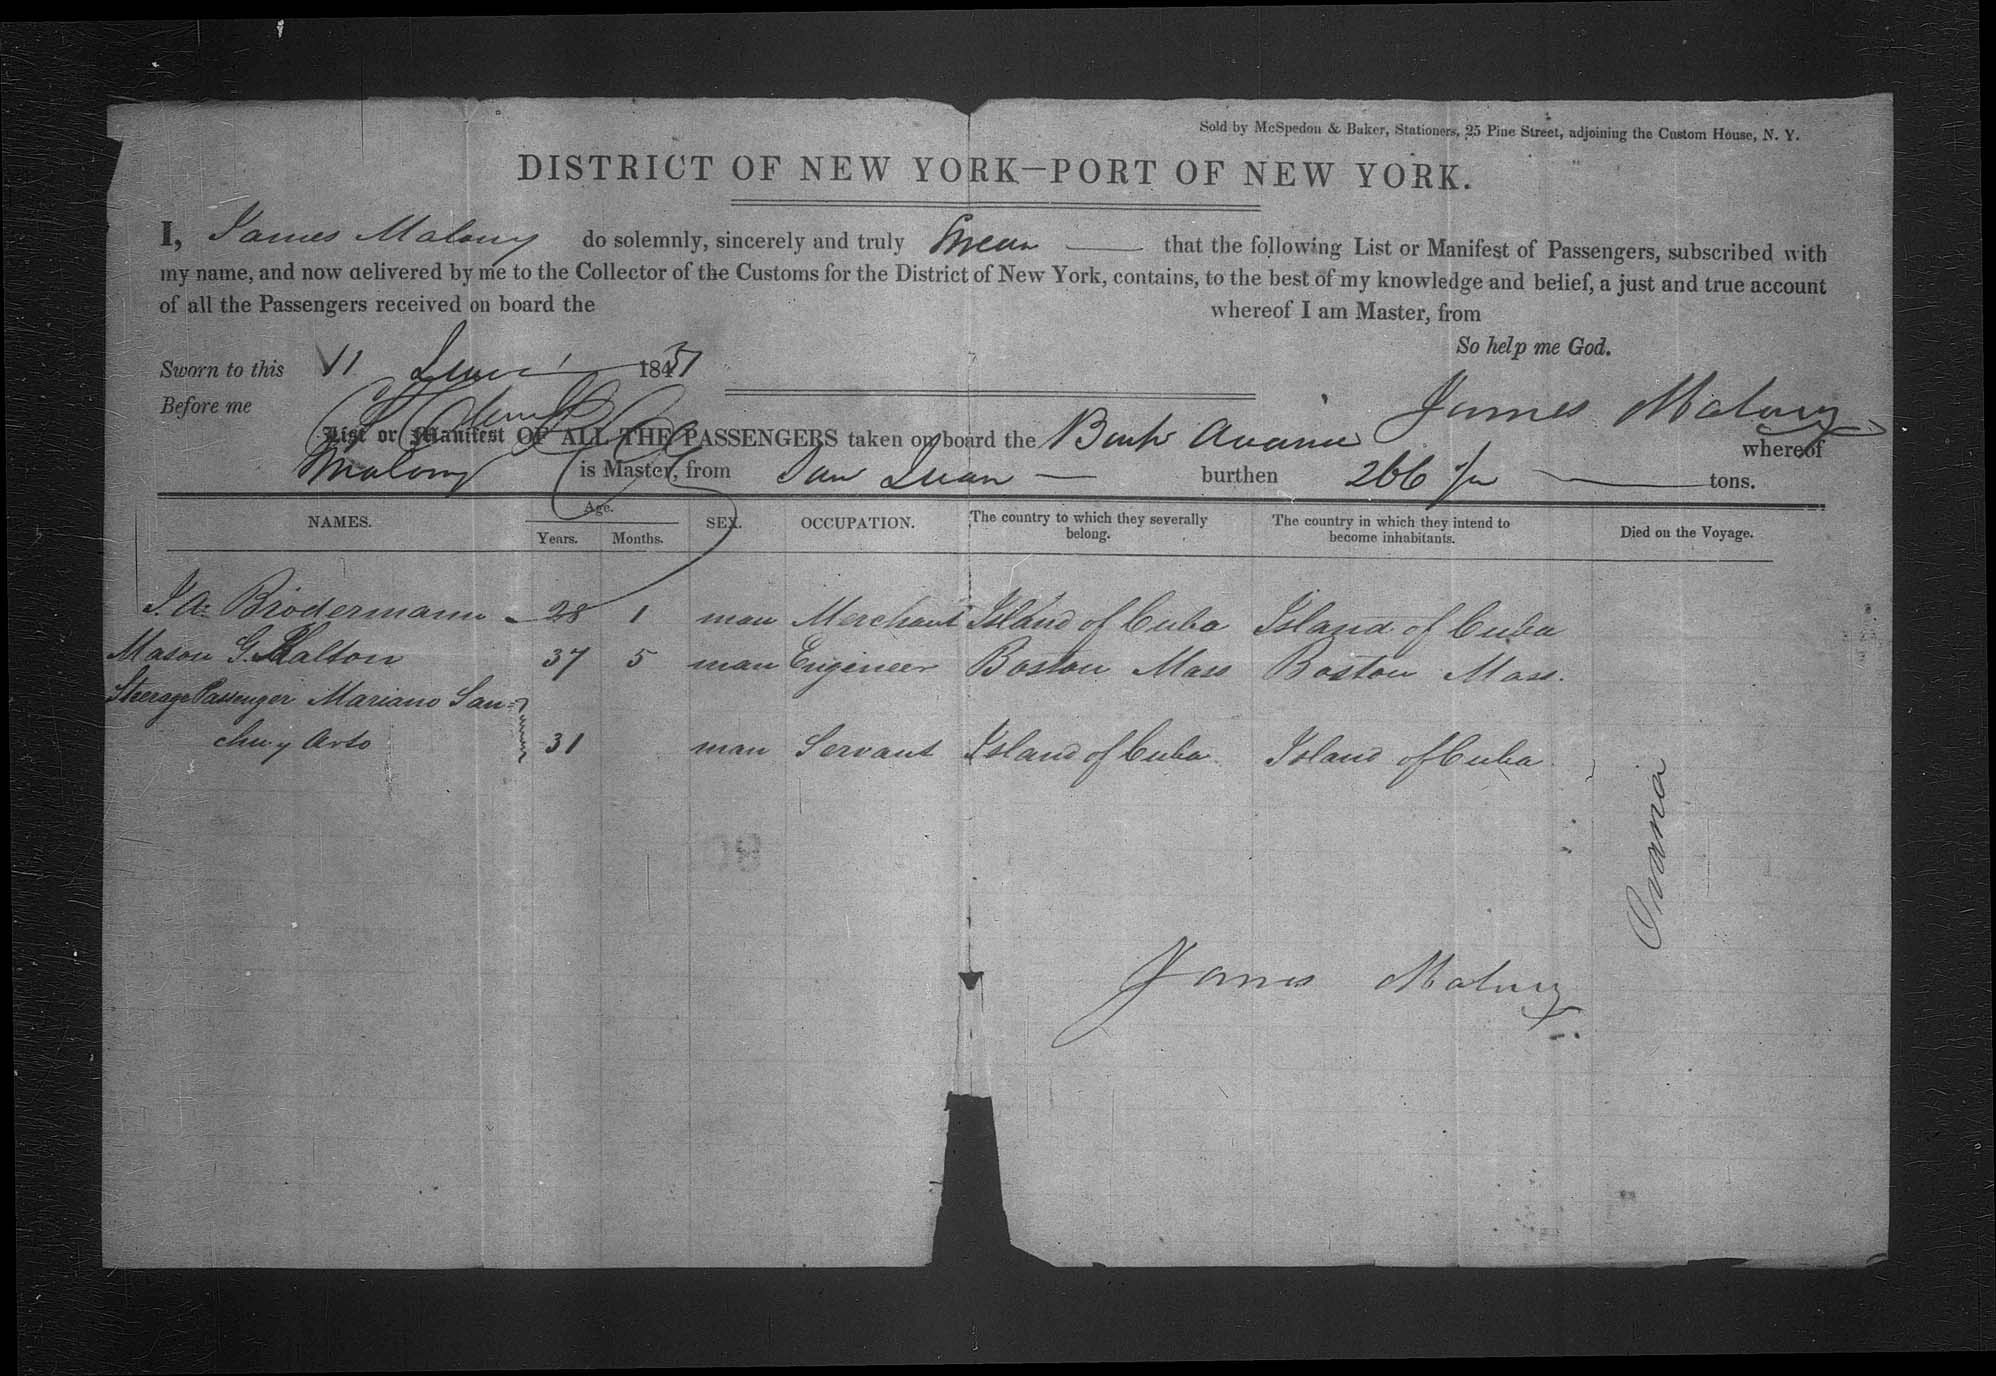 Sold by McSpedon & Baker, Stationers, 25 Pine Street, adjoining the Custom House, N. Y.
DISTRICT OF NEW YORK—PORT OF NEW YORK.
I, James Malony do solemnly, sincerely and truly Swear that the following List or Manifest of Passengers, subscribed with
my name, and now delivered by me to the Collector of the Customs for the District of New York, contains, to the best of my knowledge and belief, a just and true account
of all the Passengers received on board the whereof I am Master, from
So help me God.
Sworn to this 11 June 1851
Before me
James Malony
List or Manifest OF ALL THE PASSENGERS taken on board the Bark whereof
Malony is Master, from San Juan burthen 266 tons.
NAMES. Age. Years. Months. SEX. OCCUPATION. The country to which they severally belong. The country in which they intend to become inhabitants. Died on the Voyage.
J. A. Brodermann 28 1 man Merchant Island of Cuba Island of Cuba
Mason G. 37 5 man Engineer Boston Mass Boston Mass.
Steerage Passenger Mariano San=
31 man Servant Island of Cuba Island of Cuba
James Malony